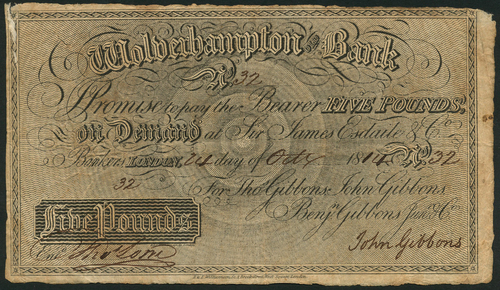 Wolverhampton Bank
No. 32
I Promise to pay the Bearer FIVE POUNDS.
on Demand at Sir James Esdaile & Co.
Bankers LONDON, 24 day of Octr 1814 No. 32
32 For Thos. Gibbons, John Gibbons
Benjn. Gibbons Junr. & Co.
Five Pounds
Entd.
John Gibbons